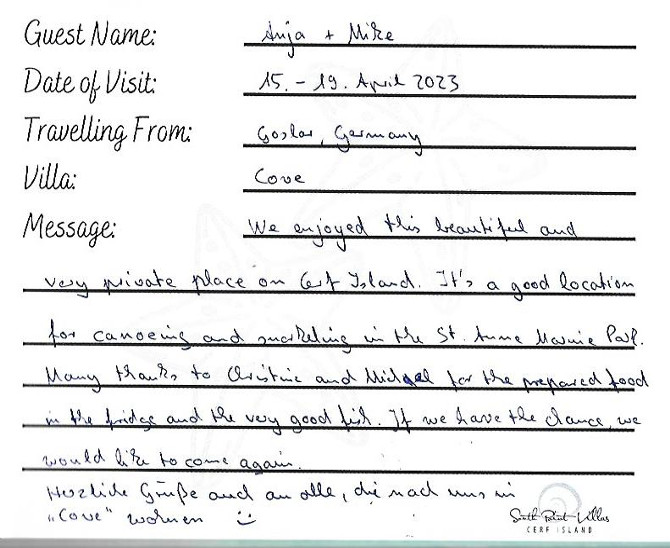 Guest Name: Anja + Mike
Date of Visit: 15. - 19. April 2023
Travelling From: Goslar, Germany
Villa: Cove
Message: We enjoyed this beautiful and
very private place on Cerf Island. It's a good location
for canoeing and snorkeling in the St. Anne Marine Park.
Many thanks to Christine and Michael for the prepared food
in the fridge and the very good fish. If we have the chance, we
would like to come again.
Herzliche Grüße auch an alle, die nach uns in
"Cove" wohnen :)
South Point Villas
CERF ISLAND